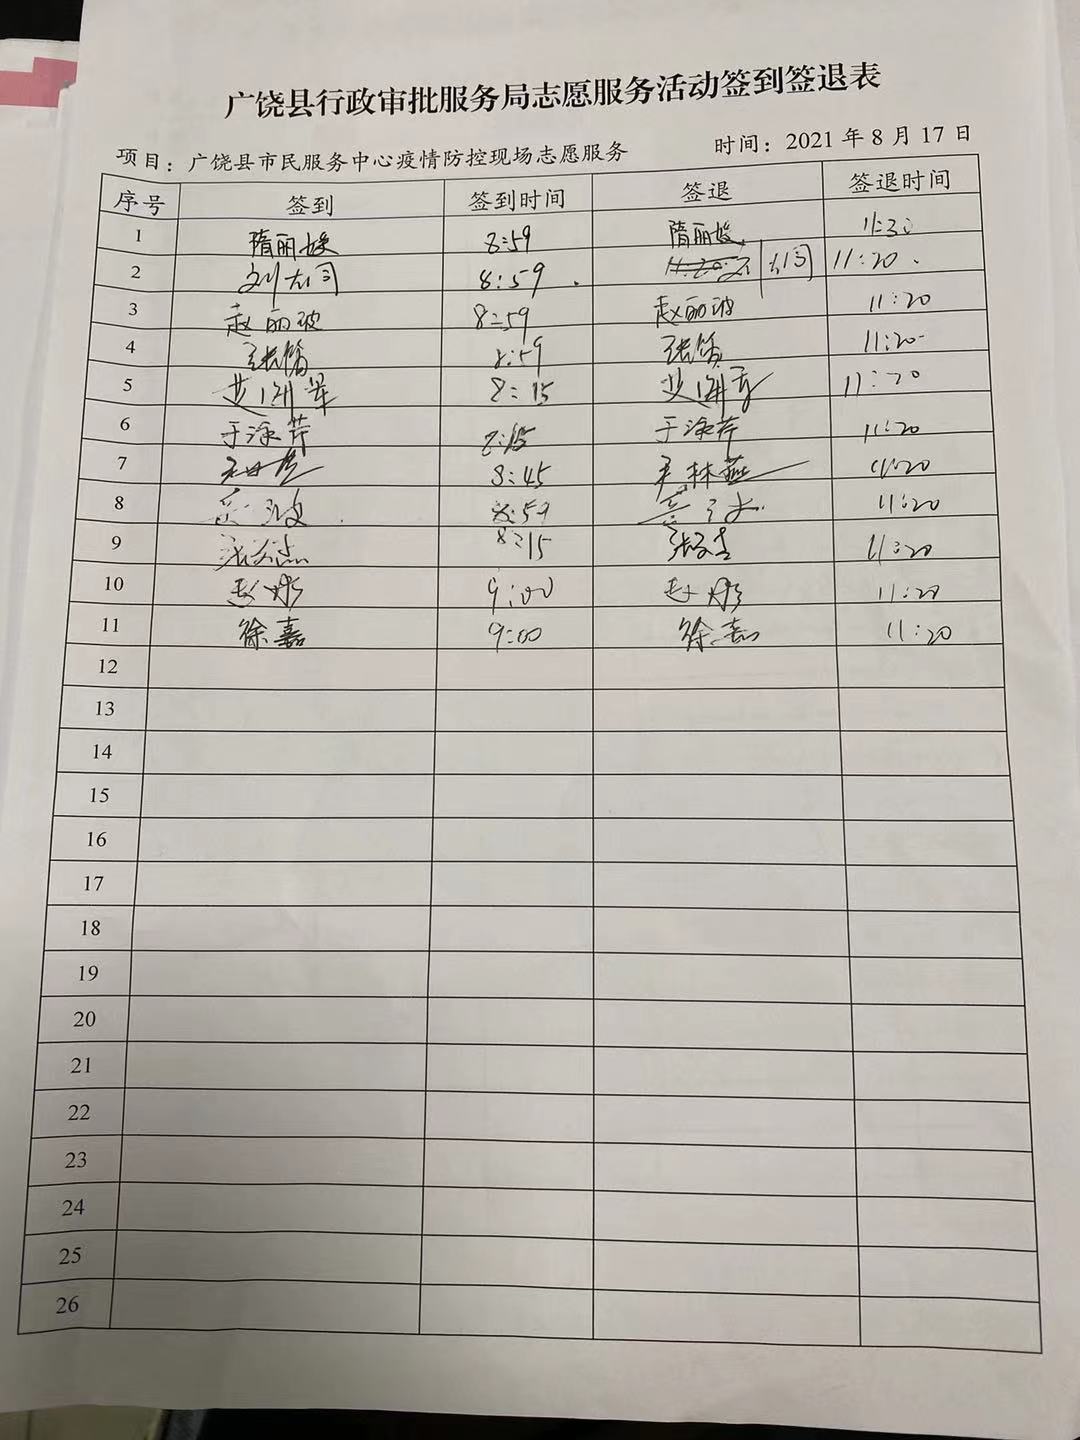 广饶县行政审批服务局志愿服务活动签到签退表
项目：广饶县市民服务中心疫情防控现场志愿服务 时间：2021年8月17日
序号 签到 签到时间 签退 签退时间
1 隋丽媛 8:59 隋丽媛 11:30
2 刘大同 8:59 刘大同 11:20
3 赵丽波 8:59 赵丽波 11:20
4 张倩 8:59 张倩 11:20
5 8:15 11:20
6 于涤芹 8:15 于涤芹 11:20
7 8:45 林燕 11:20
8 8:59 11:20
9 8:15 11:20
10 赵彤 9:00 赵彤 11:20
11 徐嘉 9:00 徐嘉 11:20
12
13
14
15
16
17
18
19
20
21
22
23
24
25
26